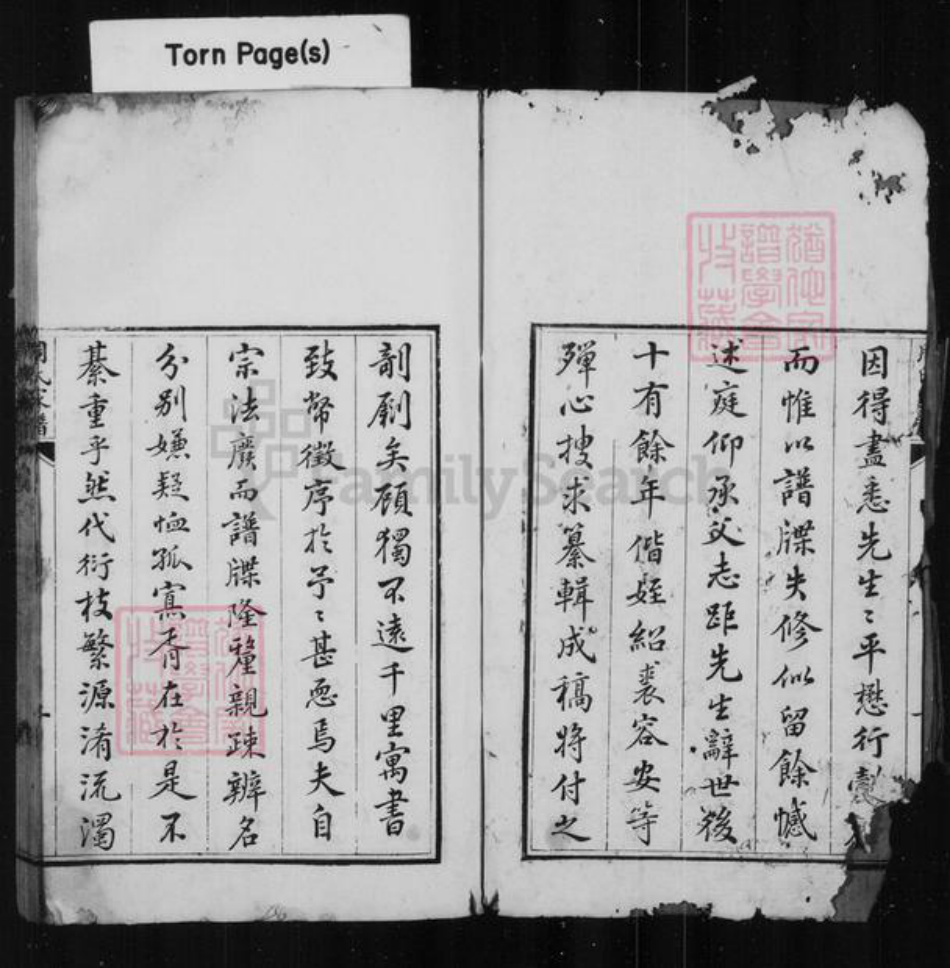 Torn Page(s)
因得盡悉先生〻平懋行
而惟以譜牒失修似留餘憾
述庭仰承父志距先生辭世後
十有餘年偕姪紹裘容安等
殫心搜求纂輯成稿將付之
剞劂矣頋獨不遠千里寓書
致幣徵序於予〻甚恧焉夫自
宗法廢而譜牒隆釐親疎辨名
分别嫌疑恤孤寡胥在於是不
綦重乎然代衍枝繁源淆流濁
FamilySearch